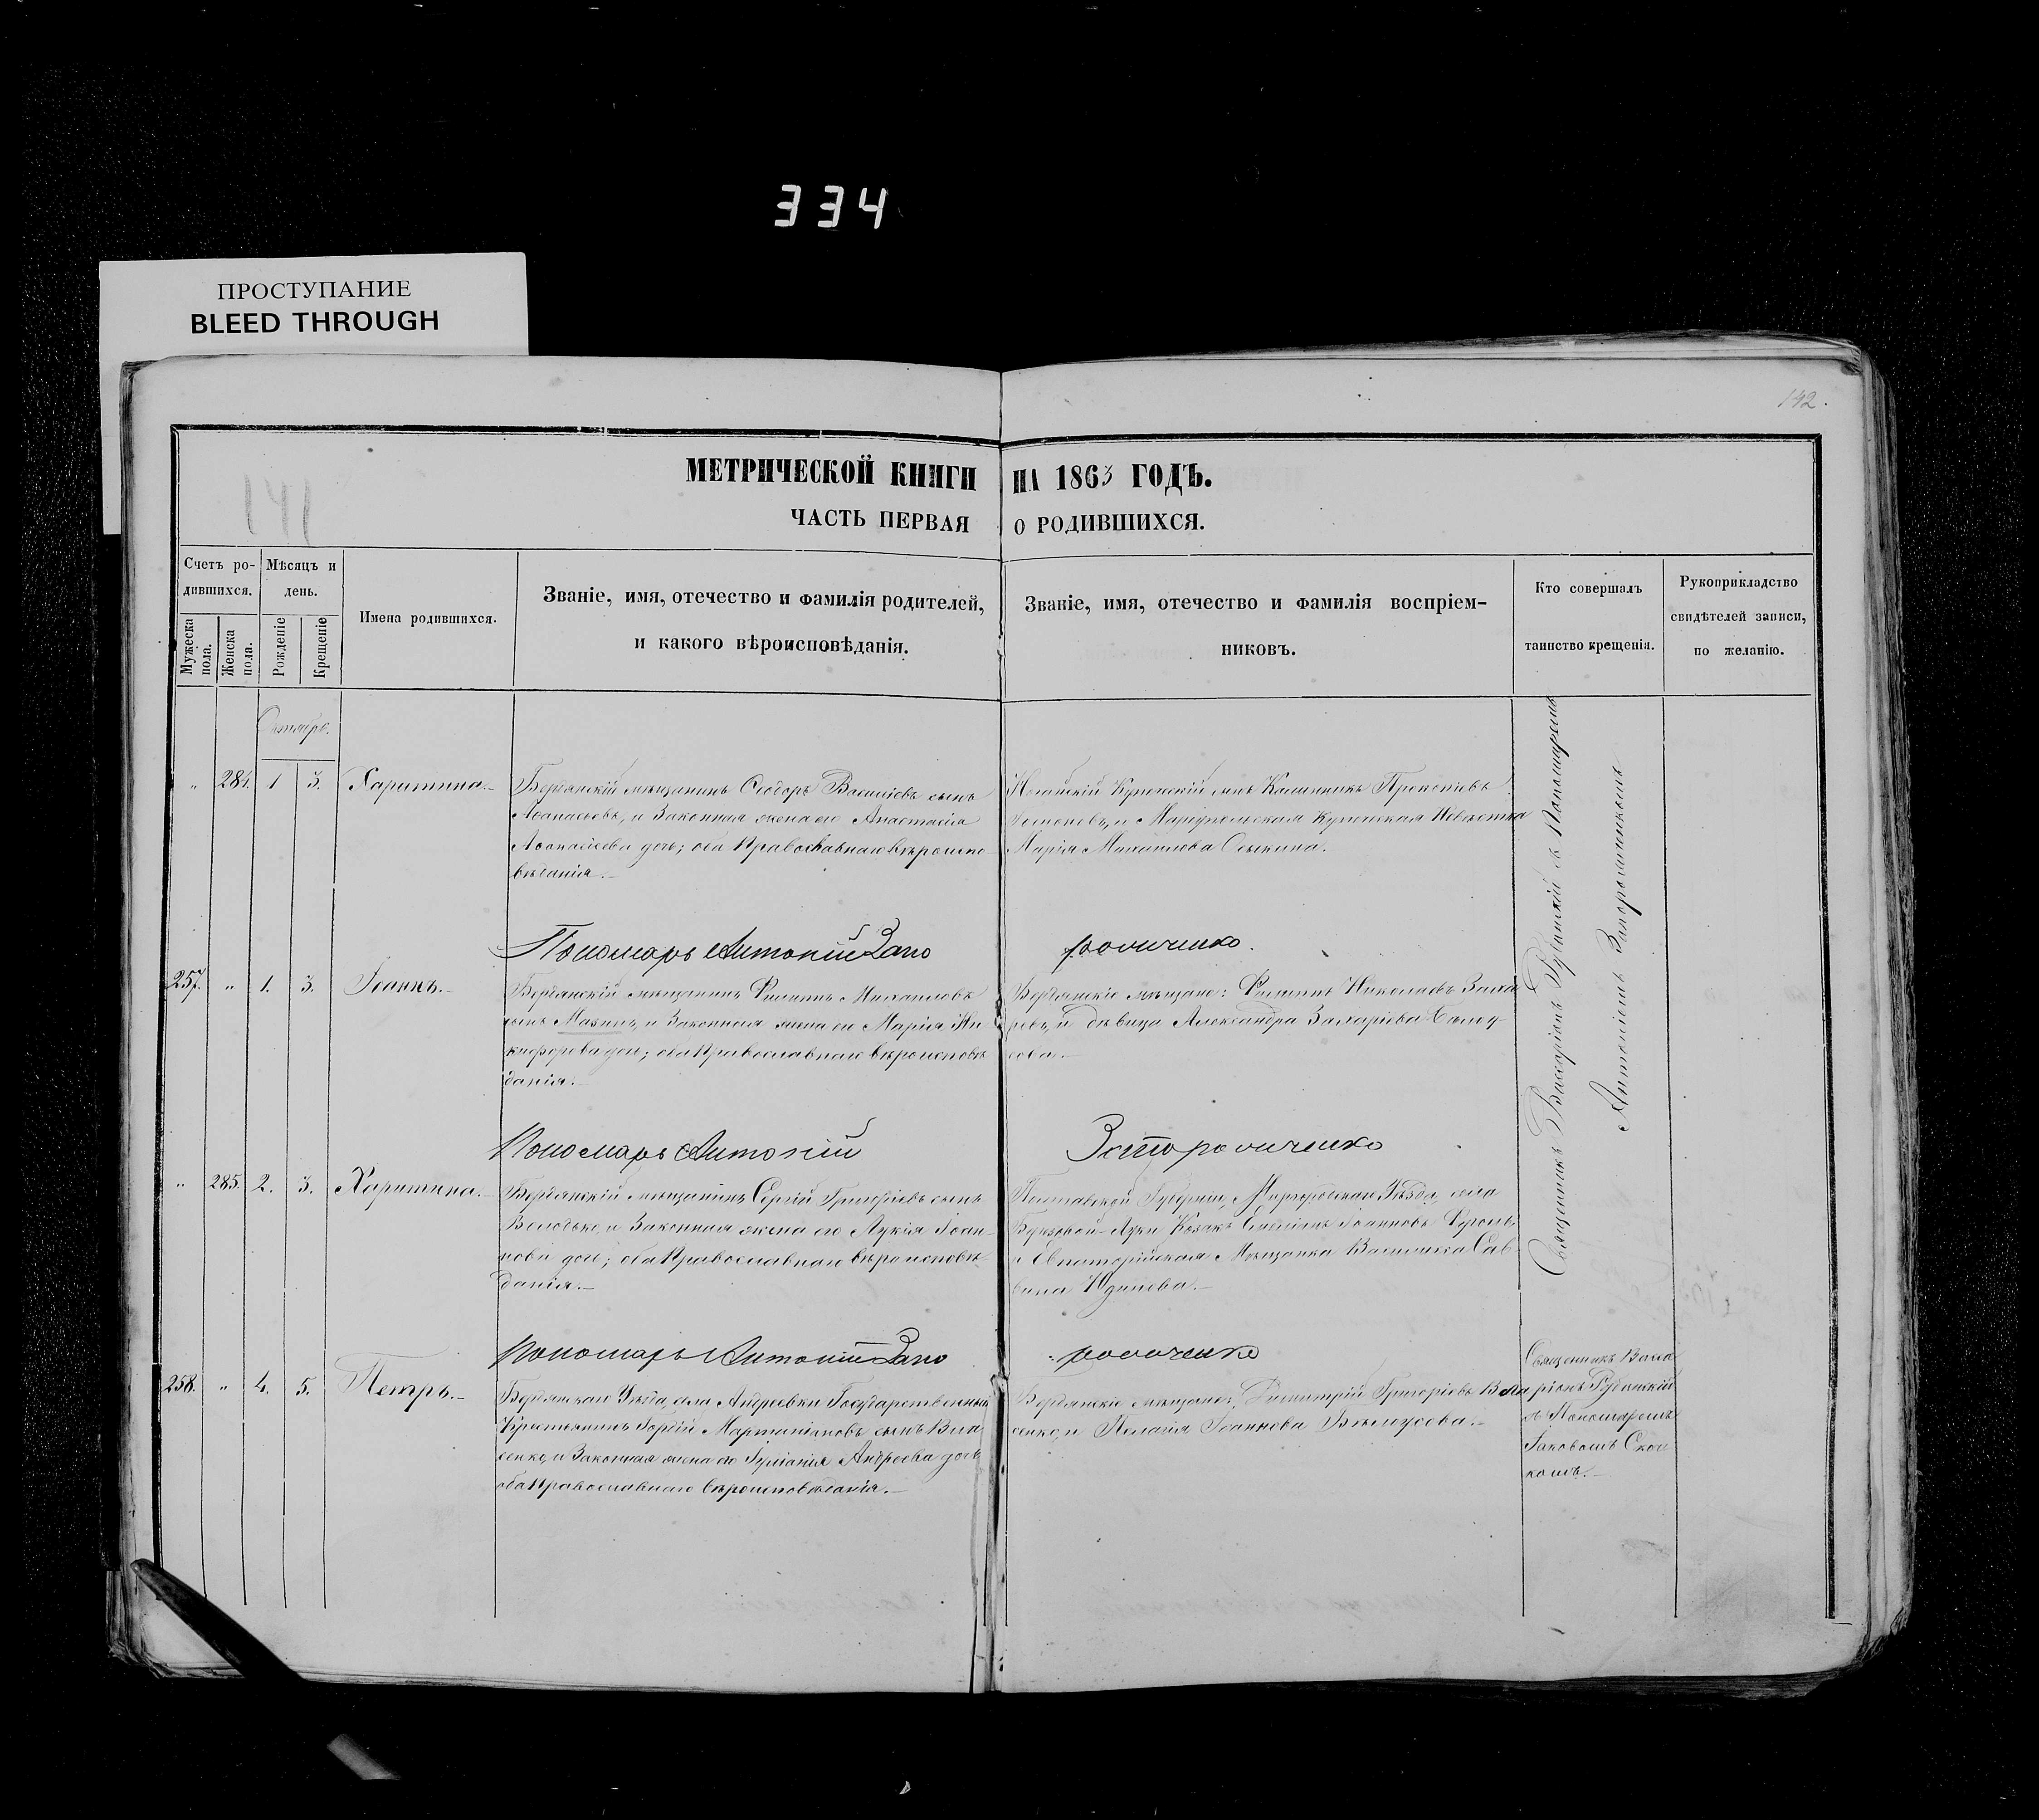 334
ПРОСТУПАНИЕ
BLEED THROUGH
142.
141
МЕТРИЧЕСКОЙ КНИГИ НА 1863 ГОДЪ.
ЧАСТЬ ПЕРВАЯ О РОДИВШИХСЯ.
Счетъ ро-
дившихся.
Мужеска пола.
Женска пола.
Мѣсяцъ и
день.
Рожденіе
Крещеніе
Имена родившихся.
Званіе, имя, отечество и фамилія родителей,
и какого вѣроисповѣданія.
Званіе, имя, отечество и фамилія воспріем-
никовъ.
Кто совершалъ
таинство крещенія.
Рукоприкладство
свидѣтелей записи,
по желанію.
Октябрь.
" 284. 1 3. Харитина.
Бердянскій мѣщанинъ Ѳеодоръ Васильевъ сынъ
Аѳанасьевъ, и Законная жена его Анастасія
Аѳанасіева дочь; оба Православнаго вѣроиспо-
вѣданія.
Купеческій Прокопіевъ
и Маріупольская Купеческая Невѣстка
Марія Михаилова
Пономарь Антоній Запо рожченко.
257. " 1. 3. Іоаннъ.
Бердянскій мѣщанинъ Филиппъ Михаиловъ
сынъ Мазинъ, и Законная жена его Марія Ни-
кифорова дочь; оба Православнаго вѣроисповѣ-
данія.
Бердянскіе мѣщане: Филиппъ Николаевъ Заха
ровъ, и дѣвица Александра Захаріева Бѣлоу-
сова.
Пономарь Антоній Запорожченко
" 285. 2. 3. Харитина.
Бердянскій мѣщанинъ Сергій Григоріевъ сынъ
Володько, и Законная жена его Лукія Іоан-
нова дочь; оба Православнаго вѣроисповѣ-
данія.
Полтавской Губерніи, Миргородскаго Уѣзда, села
Луки Козакъ Іоанновъ
и Евпаторійская Мѣщанка Василиса Сав-
вина Юдинова.
Священникъ Виссаріонъ Рубанскій съ Пономаремъ
Антоніемъ Запорожченкомъ
Пономарь Антоній Запо рожченко
258. " 4. 5. Петръ.
Бердянскаго Уѣзда, села Андреевки Государственный
Крестьянинъ Гордій Мартиніановъ сынъ Вла
сенко, и Законная жена его Іуліанія Андреева дочь
оба Православнаго вѣроисповѣданія.
Бердянскіе мѣщане: Димитрій Григоріевъ Вла
сенко, и Пелагія Іоаннова Бѣлоусова.
Священникъ Висса
ріонъ Рубанскій
съ Пономаремъ
Іаковомъ